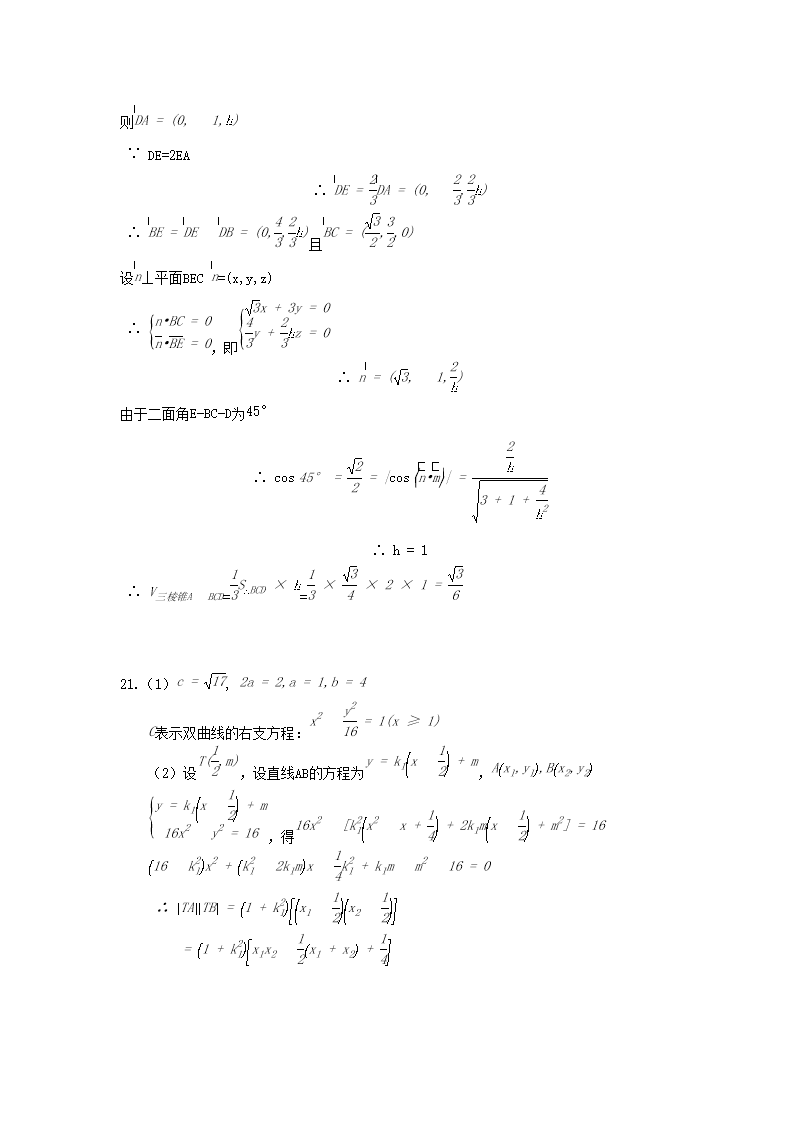 则DA = (0, 1,h)
∵ DE=2EA
∴ DE = 2/3 DA = (0, 2/3,2/3 h)
∴ BE = DE DB = (0,4/3,2/3 h)且BC = (√3/2,3/2,0)
设n⊥平面BEC n=(x,y,z)
∴ {n•BC = 0 n•BE = 0, 即{√3x + 3y = 0 4/3 y + 2/3 hz = 0
∴ n = (√3, 1,2/h)
由于二面角E-BC-D为45°
∴ cos 45° = √2/2 = |cos⟨n•m⟩| = (2/h)/√(3 + 1 + 4/h²)
∴ h = 1
∴ V三棱锥A BCD=1/3 S∴BCD × h=1/3 × √3/4 × 2 × 1 = √3/6
21.(1) c = √17, 2a = 2,a = 1,b = 4
C表示双曲线的右支方程: x² y²/16 = 1(x ≥ 1)
(2)设T(1/2,m),设直线AB的方程为y = k₁(x 1/2) + m, A(x₁,y₁),B(x₂,y₂)
{y = k₁(x 1/2) + m 16x² y² = 16 ,得16x² [k₁²(x² x + 1/4) + 2k₁m(x 1/2) + m²] = 16
(16 k₁²)x² + (k₁² 2k₁m)x 1/4 k₁² + k₁m m² 16 = 0
∴ |TA||TB| = (1 + k₁²)[(x₁ 1/2)(x₂ 1/2)]
= (1 + k₁²)[x₁x₂ 1/2(x₁ + x₂) + 1/4]